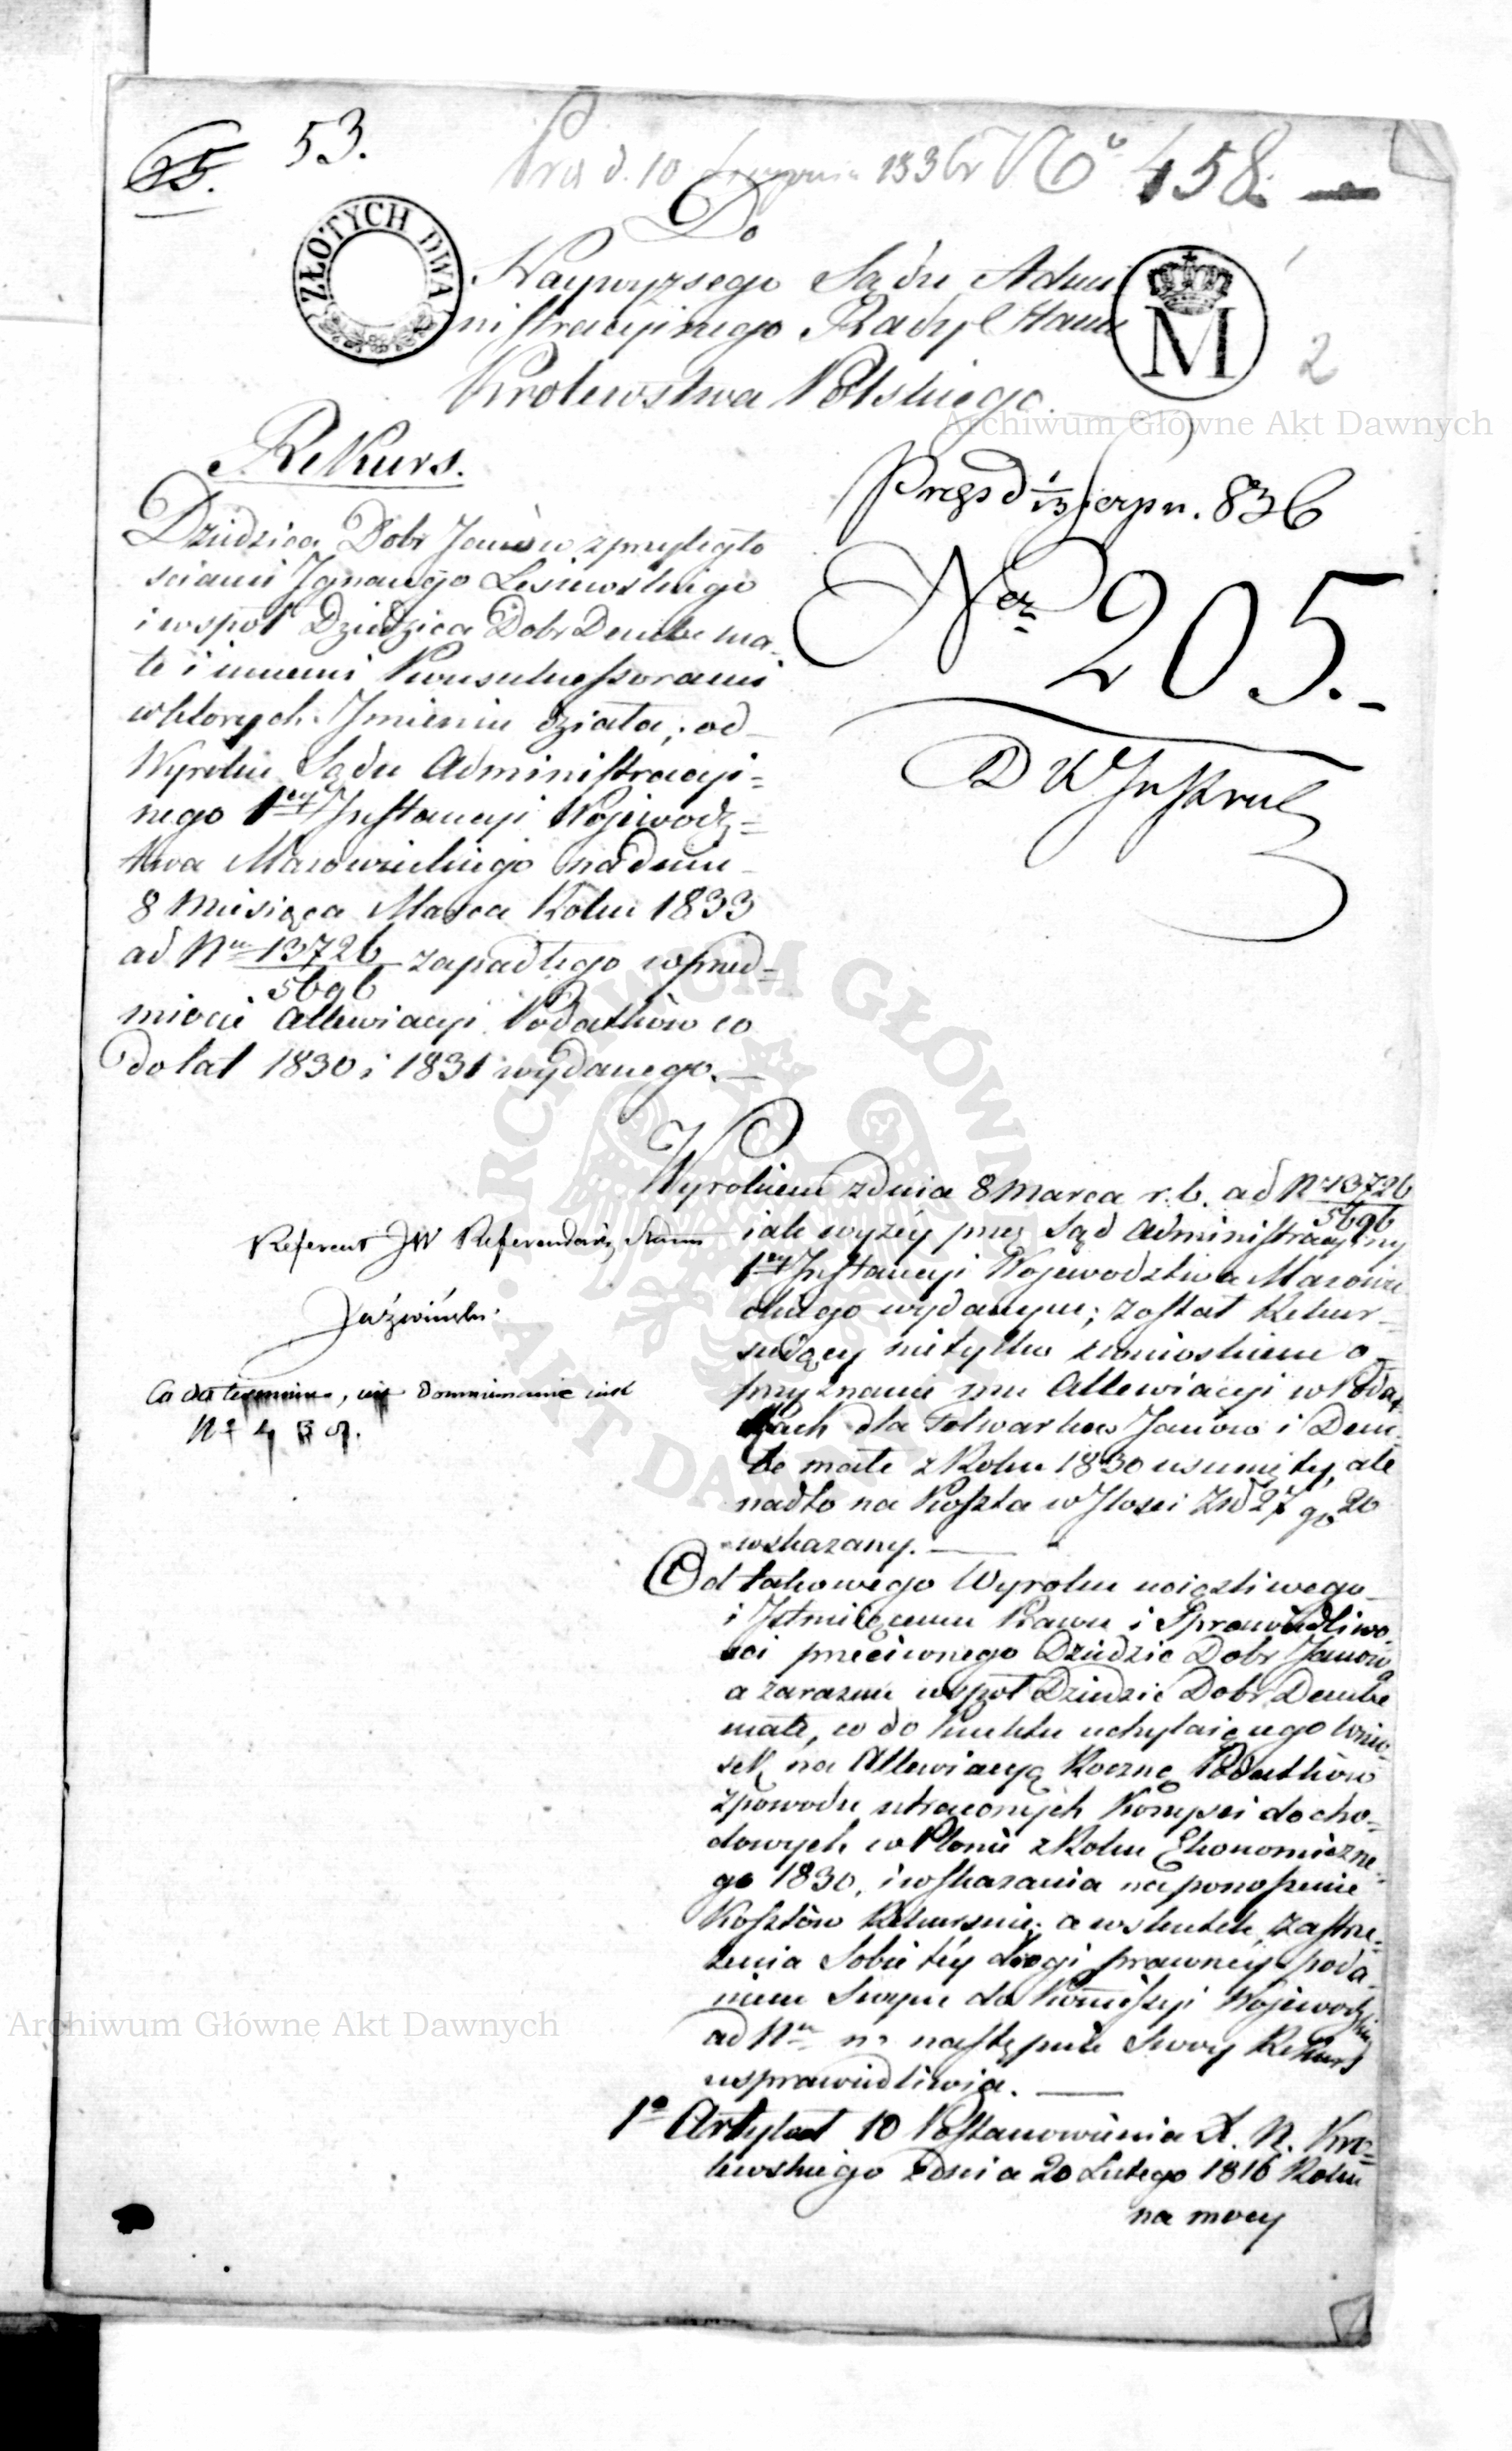 65. 53.
Prez d. 10 Sierpnia 1836r No 458.
Do
ZŁOTYCH DWA
Naywyzsego Sądu Admi
nistracyinego Rady Stanu
M
2
Krolewstwa Polskiego.
Archiwum Główne Akt Dawnych
Rekurs.
Dziedzica Dobr Janów z przyległo
sciami Ignacego Lesiewskiego
i wspoł Dziedzica Dobr Dembe ma-
łe i innemi Konsukcessorami
w ktorych Imieniu działa; od
Wyroku Sądu Administracyi=
nego 1ey Instancyi Wojewodz=
twa Mazowieckiego na dniu
8 Miesiąca Marca Roku 1833
ad Nm 13726
5696 zapadłego w przed=
miocie Allewiacyi Podatków co
do lat 1830 i 1831 wydanego.
Prezs d 1/13 Sierpn. 836
Ner 205.
D W Instruk
ARCHIWUM GŁÓWNE AKT DAWNYCH
Referent JW Referendarz Stanu
Jaźwiński.
Co do terminu, nie
N 458.
Wyrokiem z dnia 8 Marca r. b. ad Nr 13726
5696
iak wyzéy przez Sąd Administracyiny
1ey Instancyi Wojewodztwa Mazowie
ckiego wydanym; został Rekur-
suiący nietylko z wnioskiem o
przyznanie mu Allewiacyi w Podat
kach dla Folwarkow Janow i Dem-
be małe z Roku 1830 usunięty, ale
nadto na Koszta w Ilosci Złp 27 gr 20
wskazany.
Od takowego Wyroku uciązliwego
i Istnieięcemu Prawu i Sprawiedliwo-
sci przeciwnego Dziedzic Dobr Janowa
a zarazem wspoł Dziedzic Dobr Dembe
małe, co do Punktu uchylaięcego Wnio-
sek na Allewiacyą Roczną Podatków
z powodu utraconych Korzysci docho=
dowych w Plonie z Roku Ekonomiczne=
go 1830, i wskazania na ponoszenie
Kosztów Rekursuie; a w skutek zastrze=
zenia Sobie téy drogi prawnéy poda-
niem Swym do Kommissyi Wojewodzkiey
ad Nm na następnie Swoy Rekurs
usprawiedliwia.
Archiwum Główne Akt Dawnych
1o Artykuł 10 Postanowienia X. N. Kro=
lewskiego z dnia 20 Lutego 1816 Roku
na mocy